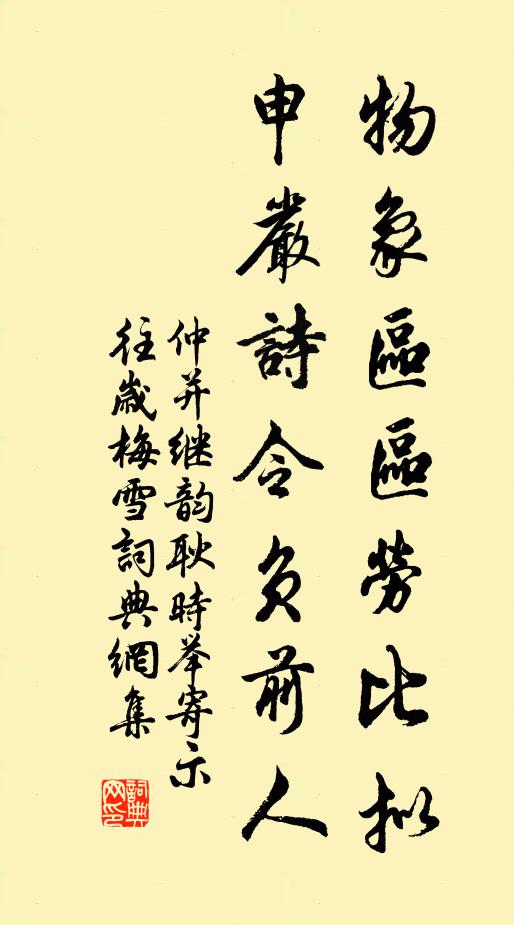 物象區區勞比拟
申嚴詩令負前人
仲并继韵耿時举寄示
往歲梅雪詞典網集
詞典
网印